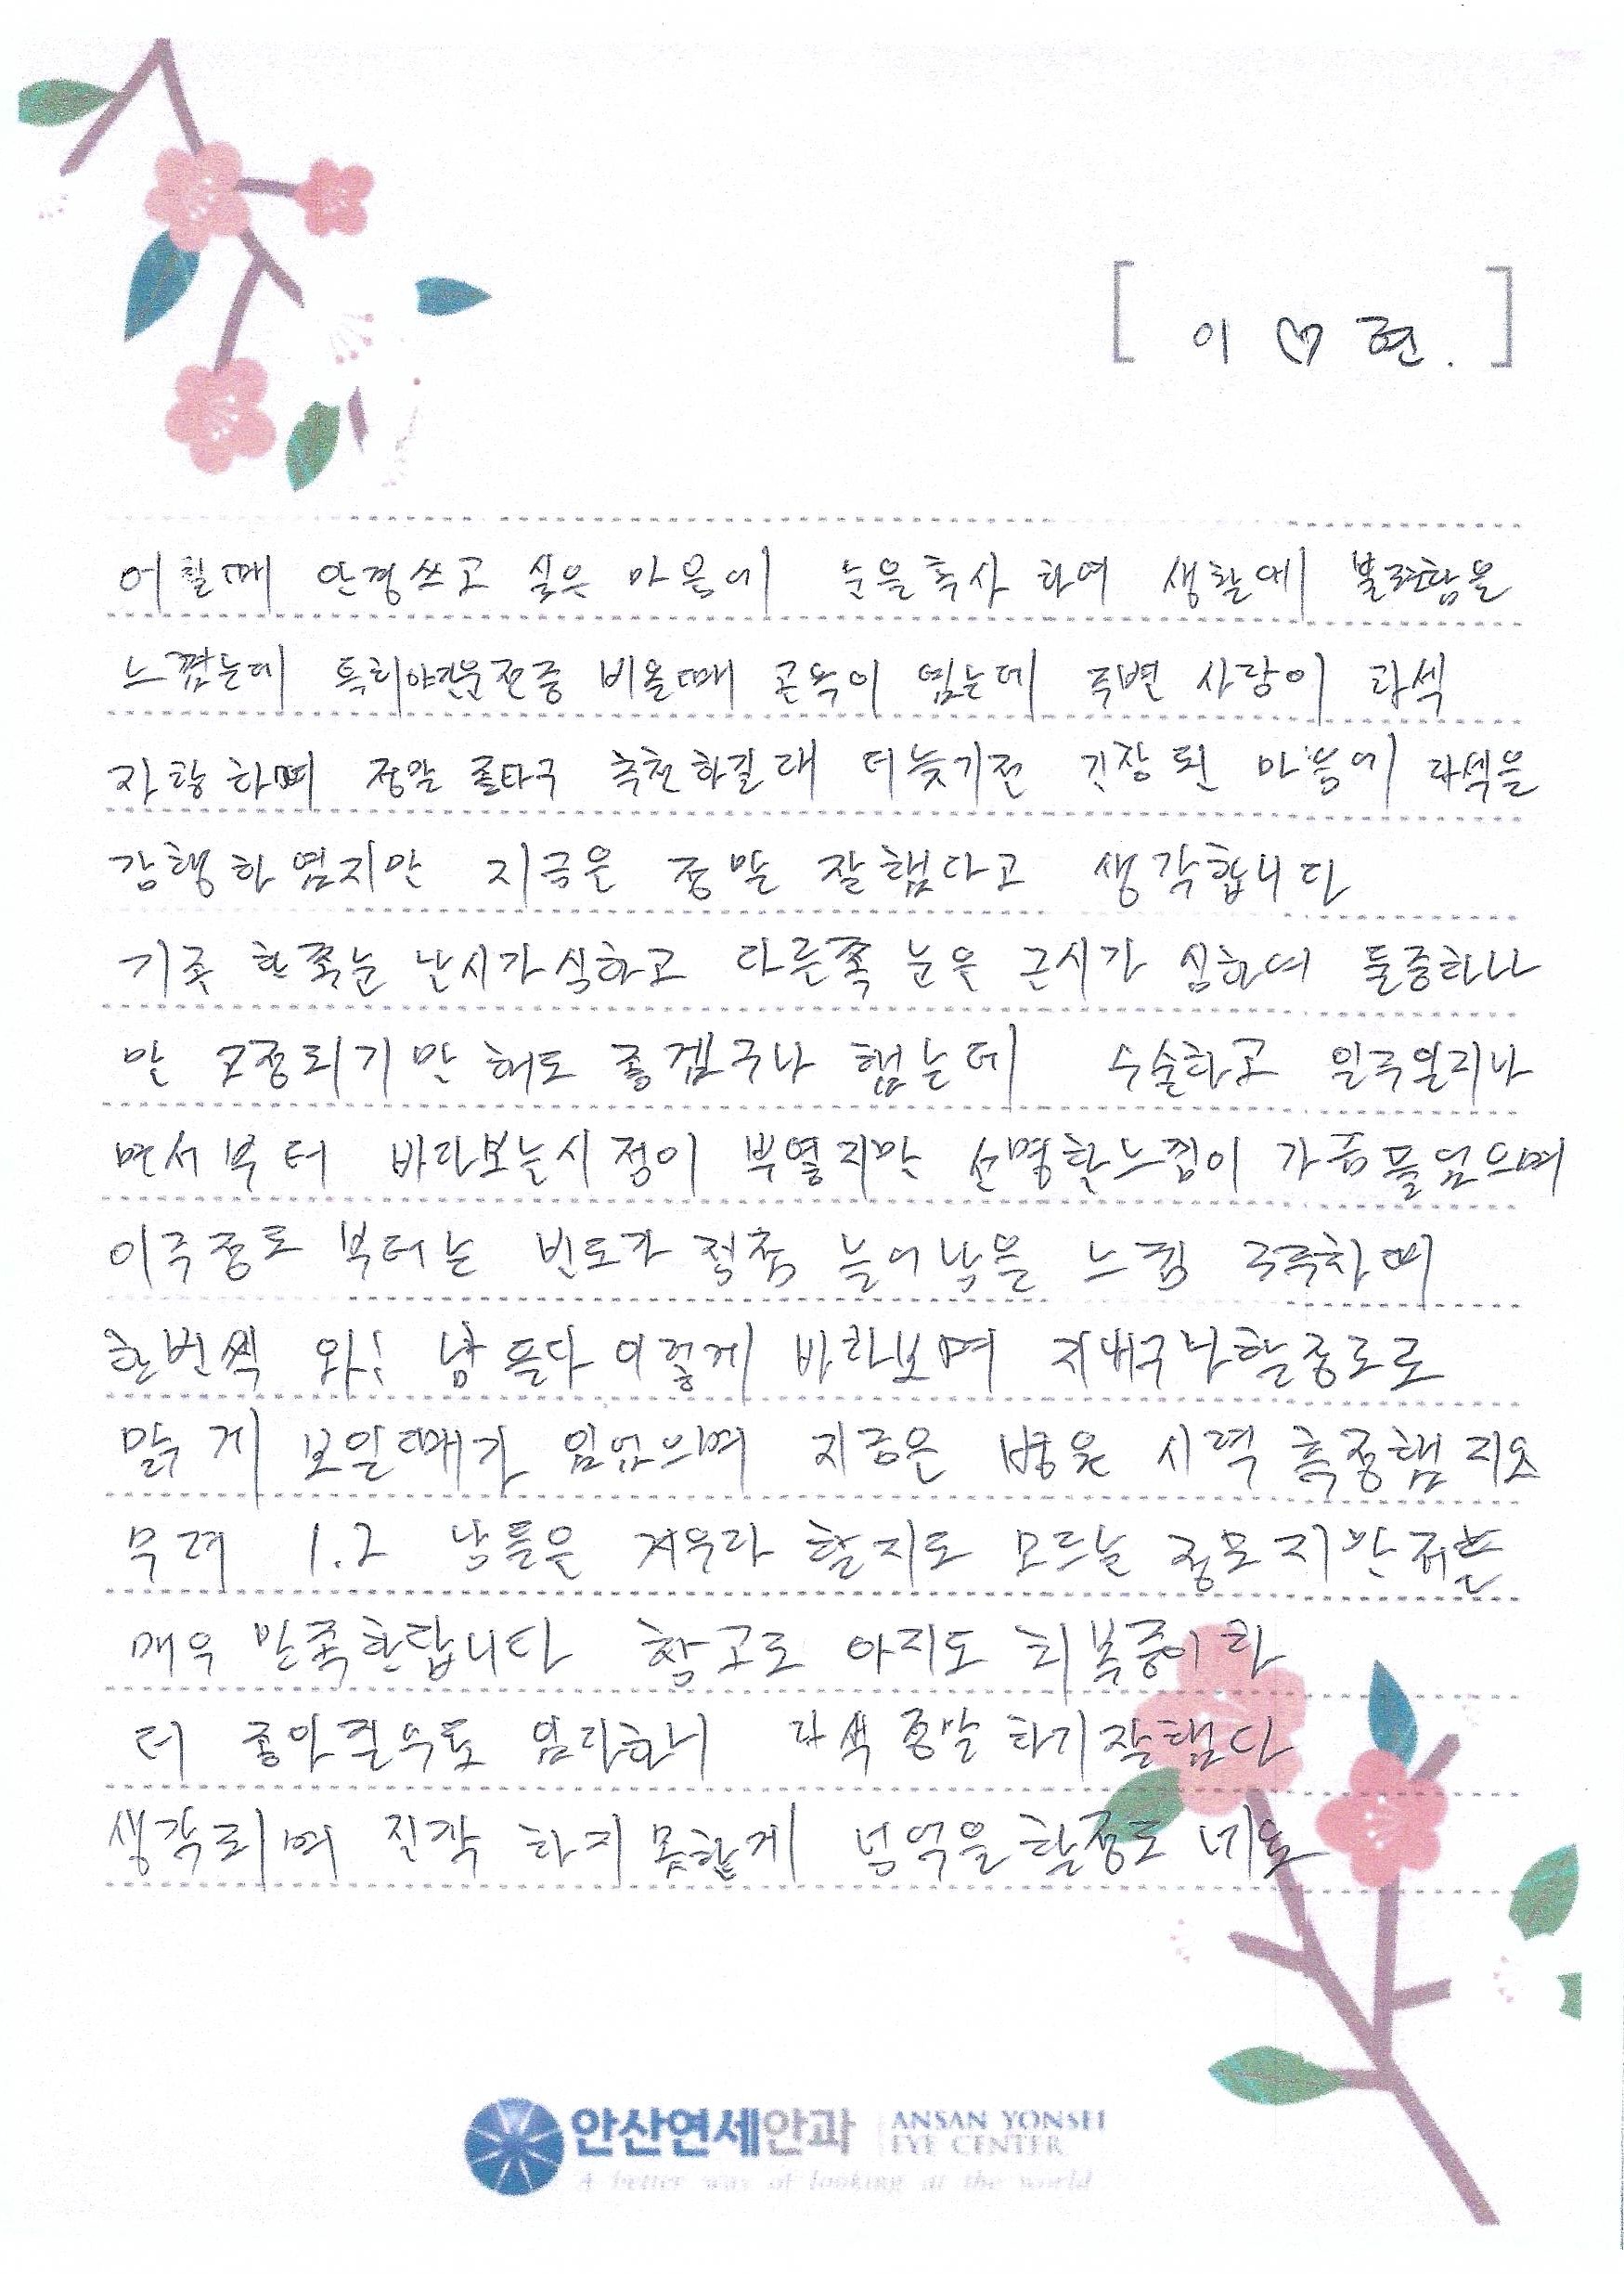 [ 이 ♡ 현. ]
어릴때 안경쓰고 싶은 마음에 눈을혹사 하여 생활에 불편함을
느꼈는데 특히야간운전중 비올때 곤욕이 였는데 주변 사람이 라섹
자랑하며 정말 좋타구 추천하길래 더늦기전 긴장된 마음에 라섹을
강행하였지만 지금은 정말 잘했다고 생각합니다
기존 한쪽눈 난시가심하고 다른쪽 눈은 근시가 심하여 둘중하나
만 교정되기만 해도 좋겠구나 했는데 수술하고 일주일지나
면서부터 바라보는시점이 뿌옇지만 선명한느낌이 가끔들었으며
이주정도 부터는 빈도가 점점 늘어남을 느낌 하루하며
한번씩 와! 남들다 이렇게 바라보며 지내구나할정도로
맑게 보일때가 있었으며 지금은 병원 시력 측정했지요
무려 1.2 남들은 겨우라 할지도 모르는 정도지만 저는
매우 만족한답니다 참고로 아직도 회복중이라
더 좋아질수도 있다하니 라섹 정말 하기잘했다
생각되며 진작 하지못한게 넘억울할정도네요
안산연세안과 ANSAN YONSEI EYE CENTER
A better way of looking at the world